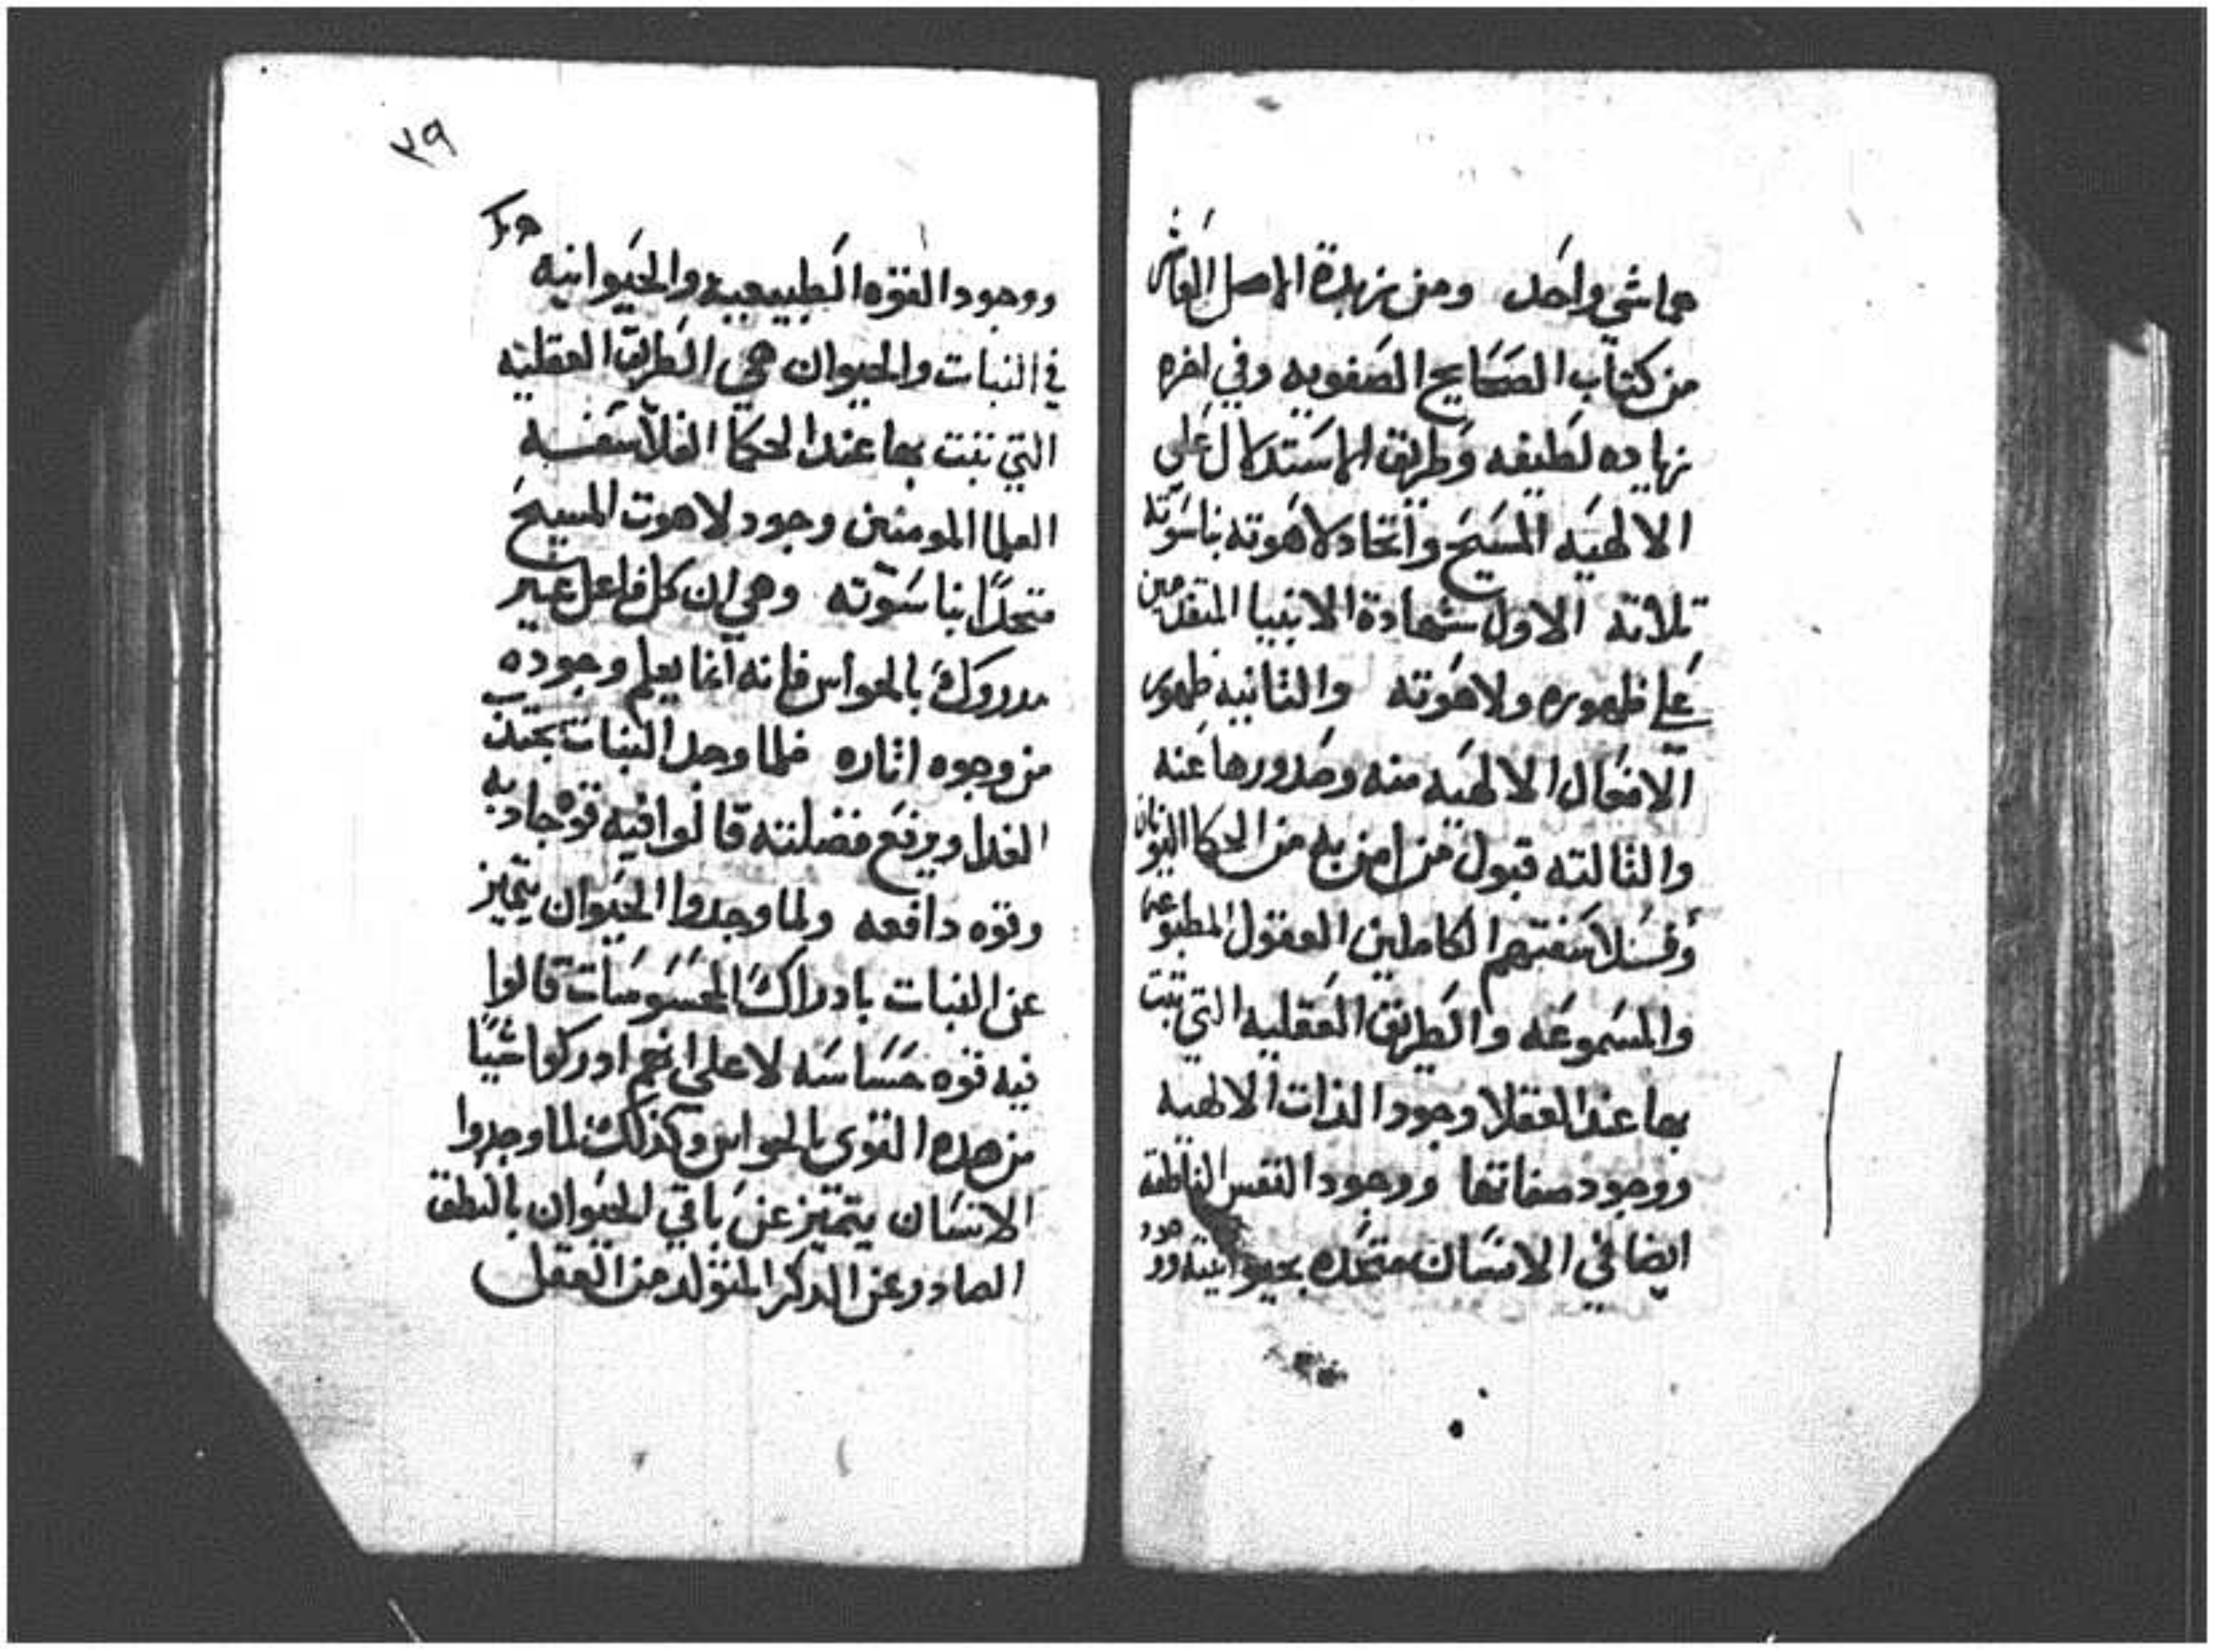 هما شي واحد ومن زبدة الاصل العاشر
من كتاب الصحايح الصفويه وفي اخره
زياده لطيفه وطريق الاستدلال علي
الالهيه المسيح واتحاد لاهوته بناسوته
تلاته الاول شهادة الانبيا المتقدمين
علي ظهوره ولاهوته والتانيه ظهور
الافعال الالهيه منه وصدورها عنه
والتالته قبول من امن به من الحكما اليونان
وفسلاسفتهم الكاملين العقول المطبوعه
والمسموعه والطريق العقليه التي تبت
بها عند العقلا وجود الذات الالهيه
ووجود صفاتها ووجود النفس الناطقه
ايضا في الانسان متحده بحيوانيته ووجود
٣٩
ووجود القوه الطبيعيه والحيوانيه
في النبات والحيوان هي الطريق العقليه
التي تبت بها عند الحكما الفلاسفه
العلما المومنين وجود لاهوت المسيح
متحدًا بناسوته وهي ان كل فاعل غير
مدروك بالحواس فانه انما يعلم وجوده
من وجوه اتاره فلما وجد النبات يجتذب
الغدا ويدفع فضلته قالوا فيه قوه جاذبه
وقوه دافعه ولما وجدوا الحيوان يتميز
عن النبات بادراك المحسوسات قالوا
فيه قوه حساسه لا علي انهم ادركوا شيًا
من هده القوي بالحواس وكذلك لما وجدوا
الانسان يتميز عن باقي الحيوان بالنطق
الصادر عن الدكر المتولد من العقل